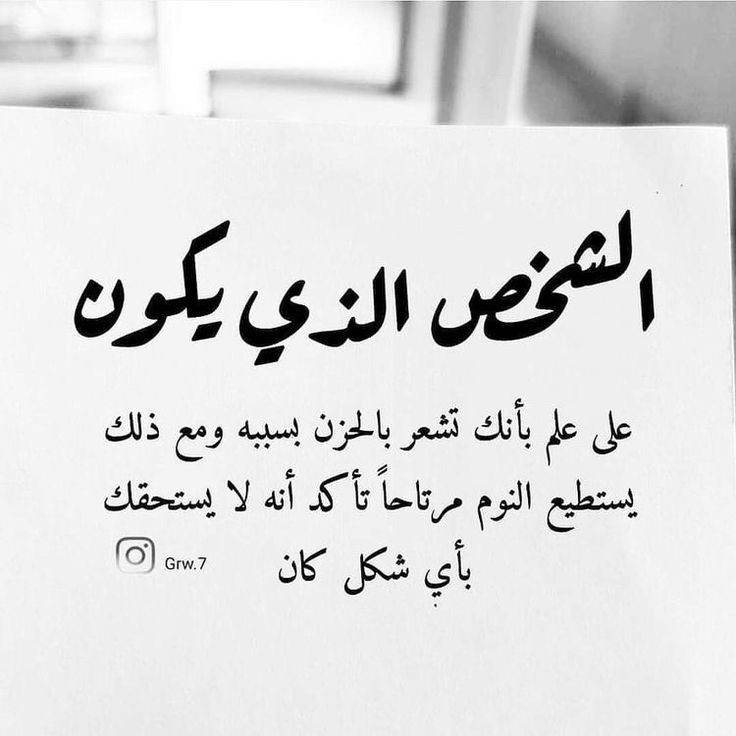 الشخص الذي يكون
على علم بأنك تشعر بالحزن بسببه ومع ذلك
يستطيع النوم مرتاحاً تأكد أنه لا يستحقك
بأي شكل كان
Grw.7